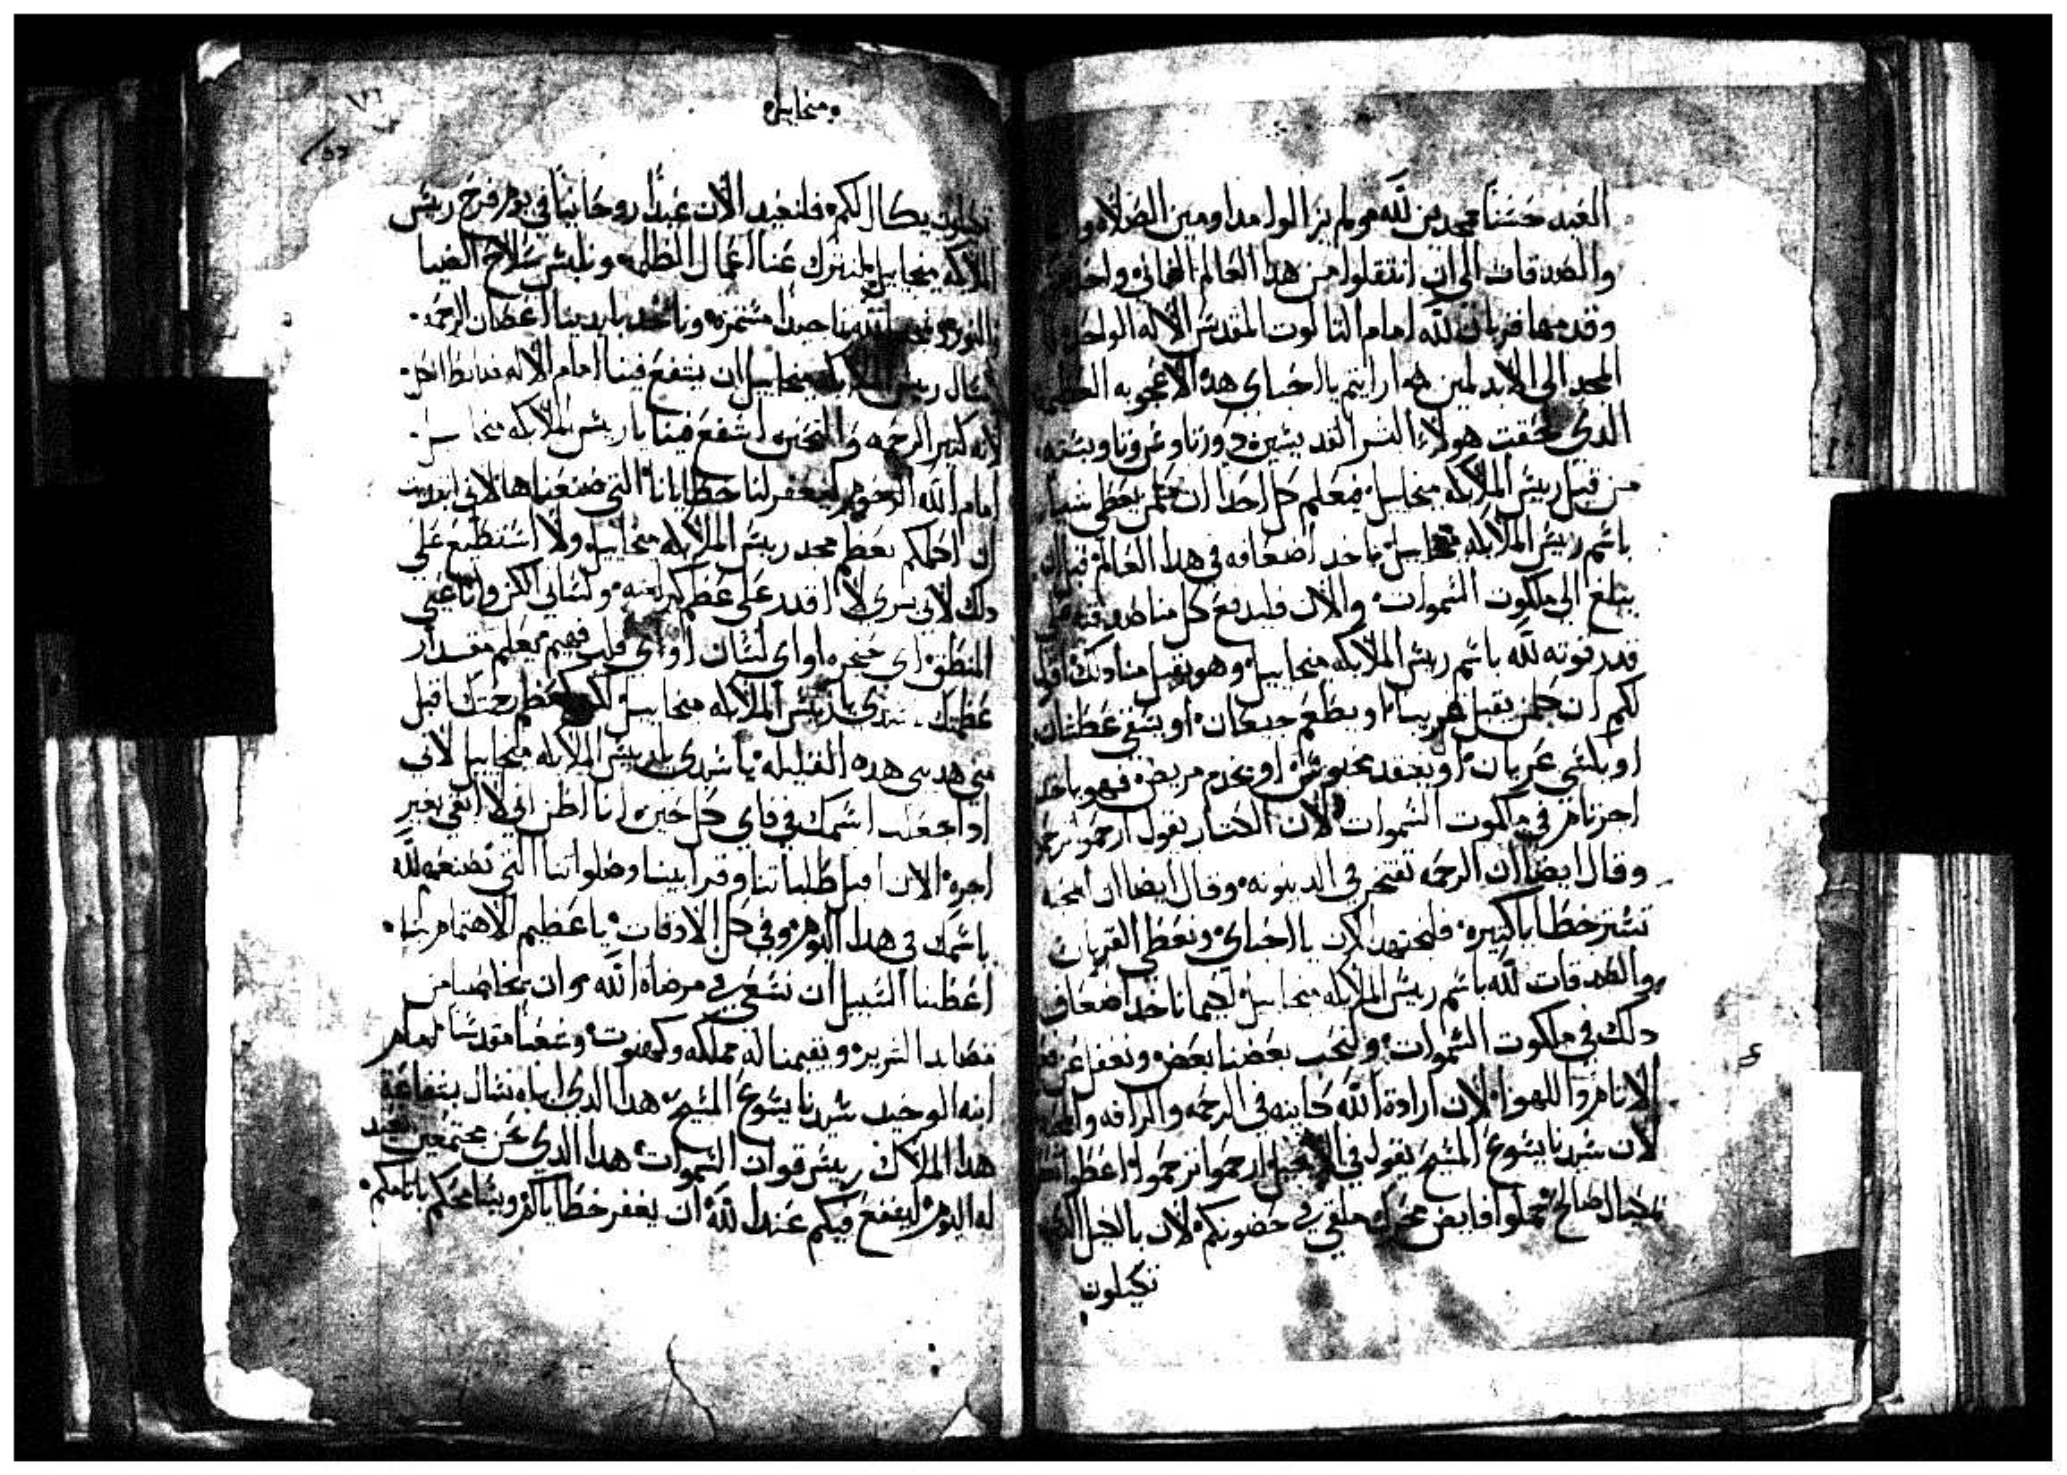 العيد حسنا ممجدين لله ولم يزالوا مداومين الصلاه
والصدقات الى ان انتقلوا من هدا العالم الفانى
وقدمها قربان لله امام التالوت المقدس الاله الواحد
المجد الى الابد امين ارايتم يا احباى هده الاعجوبه
الدى لحقت هولاء القديسين دوروتاوس وتاوبسته
من قبل رييس الملايكه ميخاييل فيعلم كل احد ان من يعطى شيا
باسم رييس الملايكه ميخاييل ياخد اضعافه في هدا العالم قبل ان
يبلغ الى ملكوت السموات والان فليدفع كل منا صدقته على
قدر قوته لله باسم رييس الملايكه ميخاييل وهو يقبل منا دلك اقول
لكم ان كلمن يقبل غريبا او يطعم جيعان او يسقى عطشان
او يكسى عريان او يفتقد محبوس او يخدم مريض فهو ياخد
اجر تام في ملكوت السموات لان الكتاب يقول ارحموا ترحموا
وقال ايضا ان الرحمه تفتخر في الدينونه وقال ايضا ان المحبه
تستر خطايا كتيره فلنجتهد الان يا احباى ونعطى القربان
والصدقات لله باسم رييس الملايكه ميخاييل لكيما ناخد اضعاف
دلك في ملكوت السموات ولنحب بعضنا بعض ونغفل عن
لان ارادة الله كاينه في الرحمه والرافه والمحبه
لان سيدنا يسوع المسيح يقول في الانجيل ارحموا ترحموا اعطوا تعطوا
مكيال صالح مملوا فايض محرك ملقى في حضونكم لان بالكيل الدى
تكيلون
وميخاييل
تكيلون يكال لكم فلنعيد الان عيدا روحانيا في يوم فرح رييس
الملايكه ميخاييل لنترك عنا اعمال الظلمه ونلبس سلاح الضيا
والنور وناخد بايدينا اغصان الرحمه
نسال رييس الملايكه ميخاييل ان يشفع فينا امام الاله ضابط الكل
لانه كتير الرحمه والتحنن اشفع فينا يا رييس الملايكه ميخاييل
امام الله ليغفر لنا خطايانا التى صنعناها لانى ابديت
ان احكى لكم بعظم مجد رييس الملايكه ميخاييل ولا استطيع على
دلك لانى بشرى لا اقدر على عظم كرامته ولسانى الكن وانا عيى
المنطق اى حنجره او اى لسان او اى قلب فهيم يعلم مقدار
عظمتك سيدى يا رييس الملايكه ميخاييل لكن كعظم رحمتك اقبل
منى هديتى هده القليله يا سيدى يا رييس الملايكه ميخاييل لانى
ادا جعلت اسمك في فاى كل حين انا اظن انى لا ابقى بغير
اجره الان اقبل طلباتنا وقرابيننا وصلواتنا التى نصنعها لله
باسمك في هدا اليوم وفي كل الاوقات يا عظيم الاهتمام بنا
اعطينا السبيل ان نسعى في مرضاة الله وان يخلصنا من
مصايد الشرير ويقيمنا له مملكه وكهنوت وشعبا مقدسا
ابنه الوحيد سيدنا يسوع المسيح هدا الدى اياه نسال بشفاعة
هدا الملاك رييس قوات السموات هدا الدى نحن مجتمعين نعيد
له اليوم ليشفع فيكم عند الله ان يغفر خطاياكم ويسامحكم باتامكم